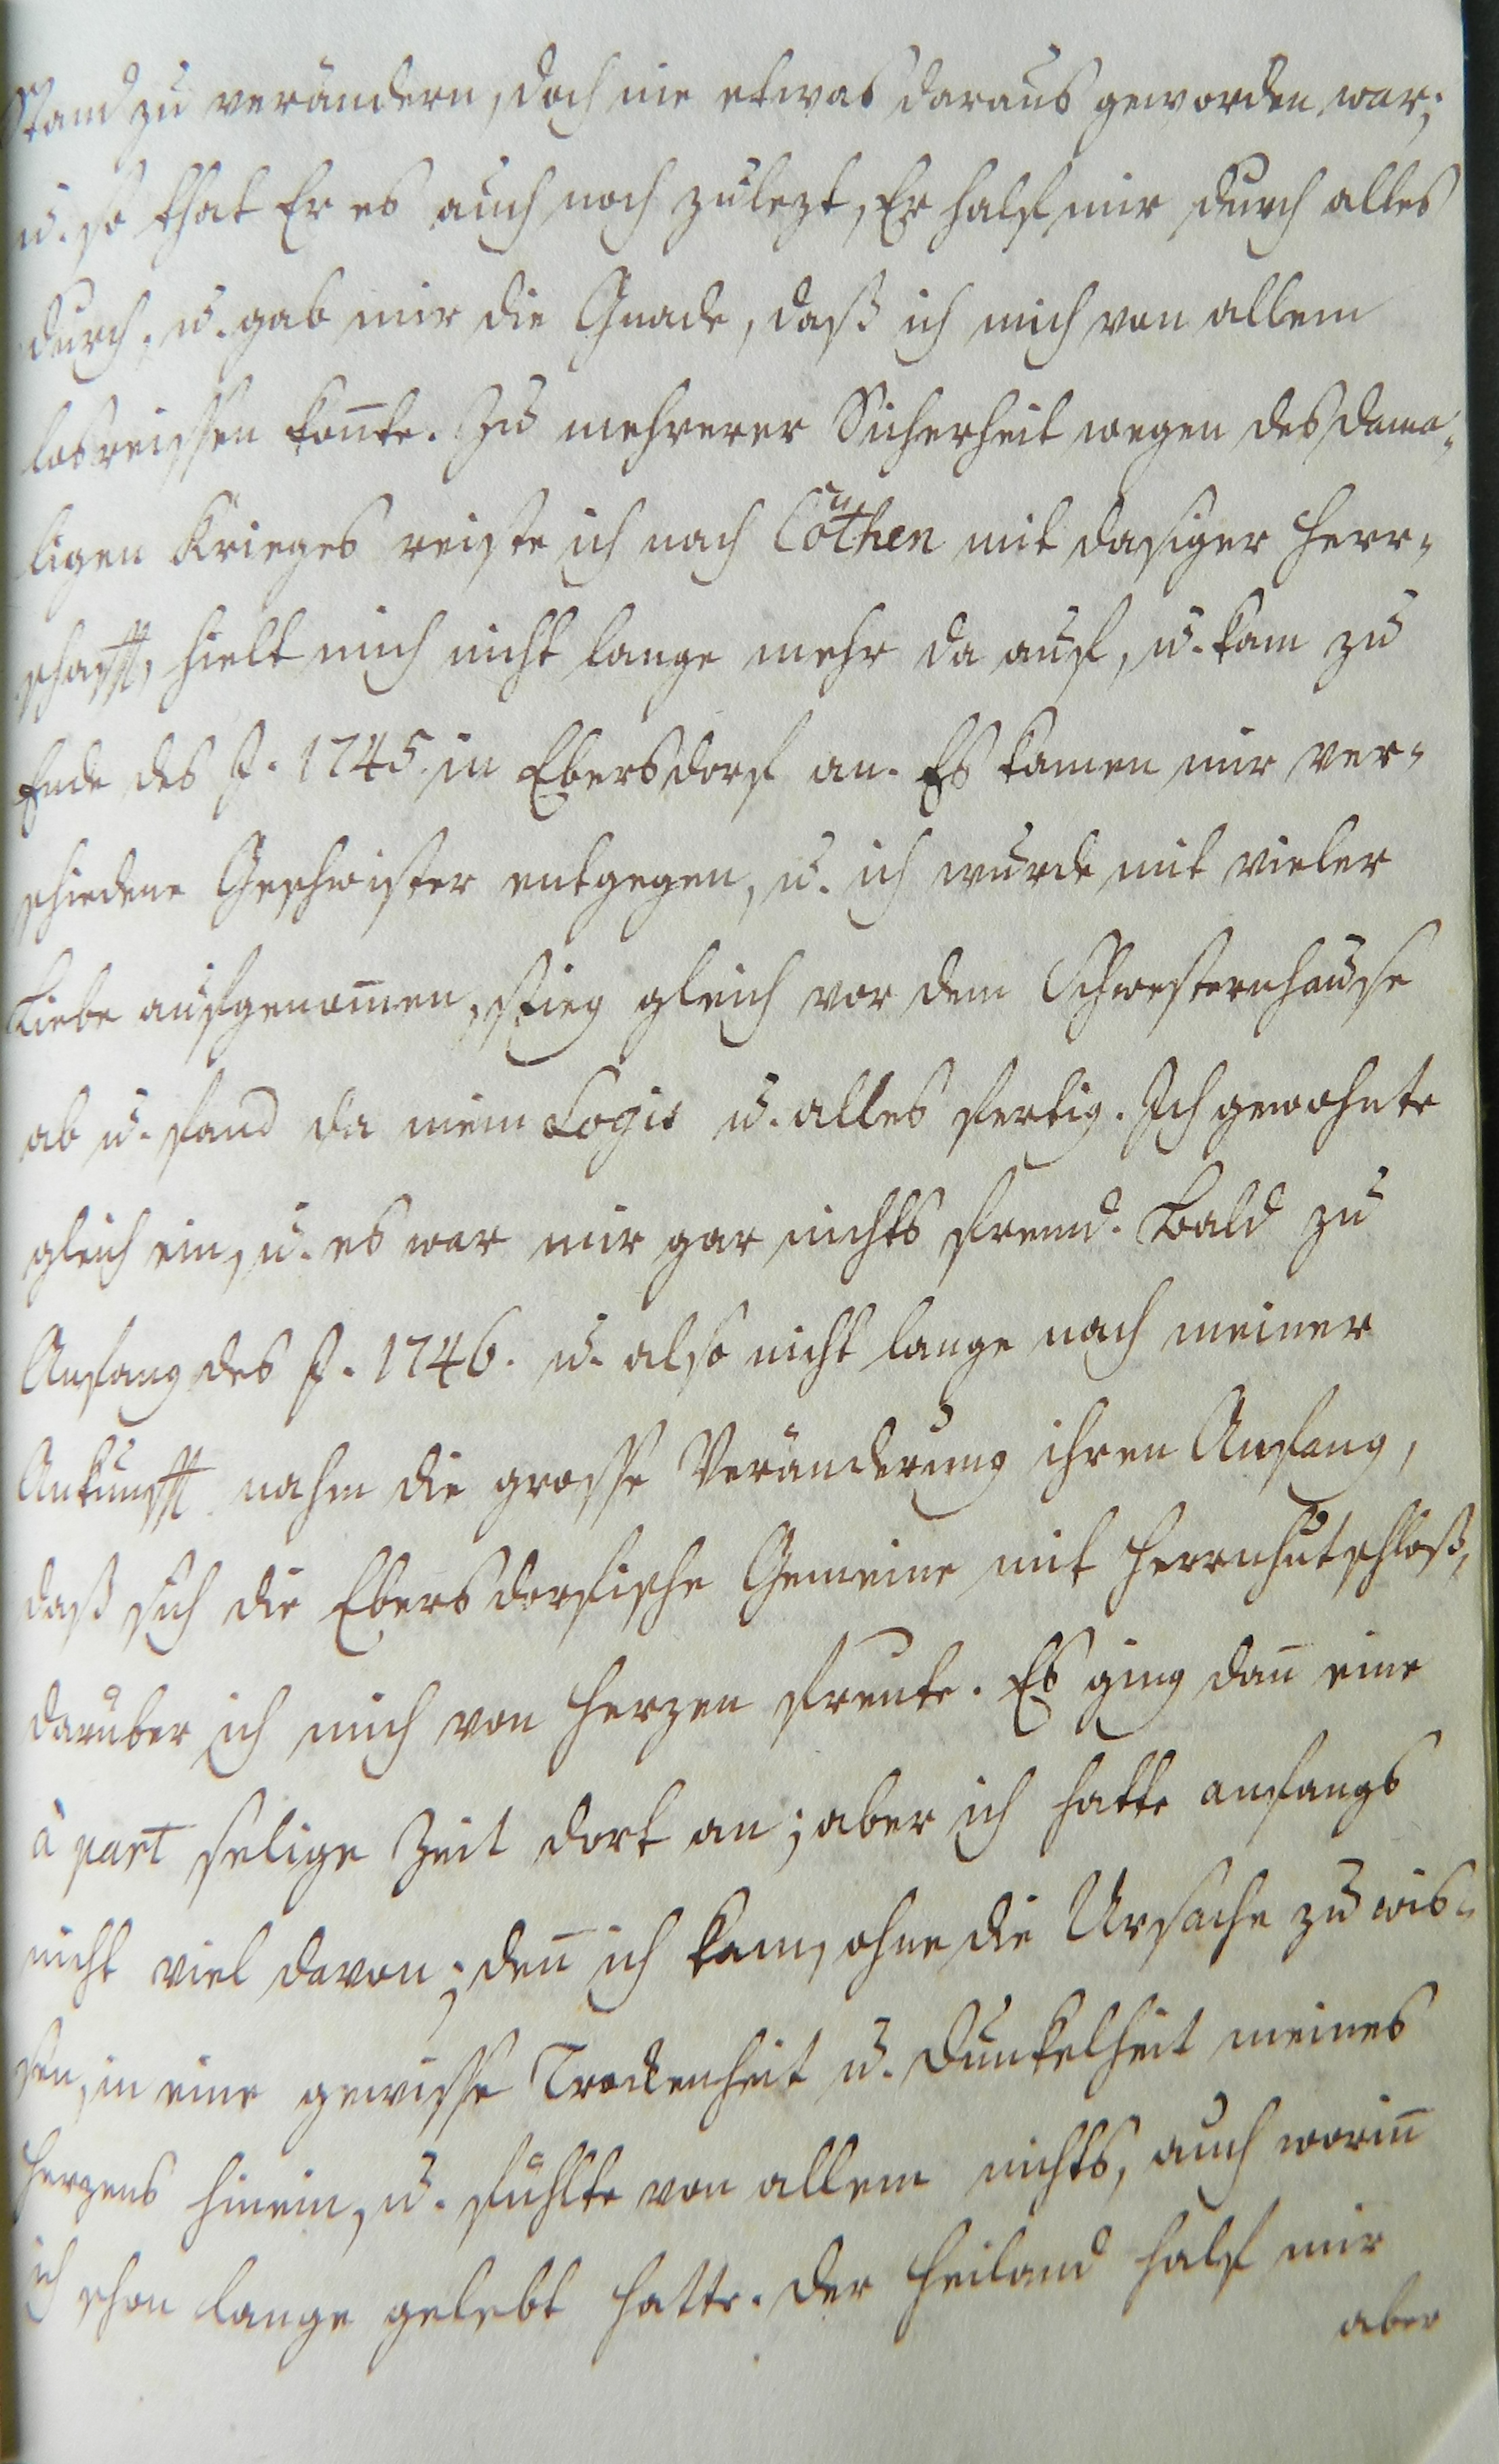 Stand zu verändern, doch nie etwas daraus geworden war;
u. so that Er es auch noch zulezt, Er half mir durch alles
durch, u. gab mir die Gnade, daß ich mich von allem
losreissen kon̄te. Zu mehrerer Sicherheit wegen des dama-
ligen Krieges reiste ich nach Cöthen mit dasiger Herr-
schafft, hielt mich nicht lange mehr da auf, u. kam zu
Ende des J. 1745. in Ebersdorf an. Es kamen mir ver-
schiedene Geschwister entgegen, u. ich wurde mit vieler
Liebe aufgenom̄en, stieg gleich vor dem Schwesternhause
ab u. fand da mein Logis u. alles fertig. Ich gewohnte
gleich ein, u. es war mir gar nichts fremd. Bald zu
Anfang des J. 1746. u. also nicht lange nach meiner
Ankunfft nahm die grosse Veränderung ihren Anfang,
daß sich die Ebersdorfische Gemeine mit Herrnhut schloß,
darüber ich mich von Herzen freute. Es ging dan̄ eine
à part selige Zeit dort an; aber ich hatte anfangs
nicht viel davon; den̄ ich kam, ohne die Ursache zu wis-
sen, in eine gewisse Trockenheit u. Dunkelheit meines
Herzens hinein, u. fühlte von allem nichts, auch worin̄
ich schon lange gelebt hatte. Der Heiland half mir
aber